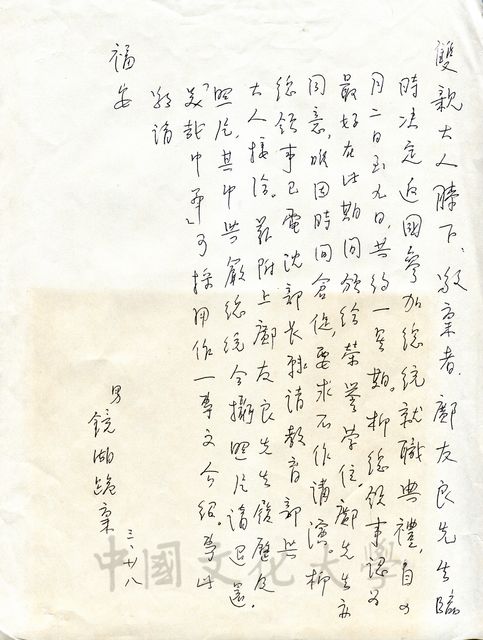 雙親大人膝下、敬稟者、鄺友良先生臨
時決定返國參加總統就職典禮，自四
月二日至九日，共約一星期。柳總領事認為
最好在此期間頒給榮譽學位，鄺先生亦
同意，唯因時間倉促，要求不作講演。柳
總領事已電沈部長轉請教育部與
大人接洽。茲附上鄺友良先生履歷及
照片，其中與嚴總統合攝照片請退還。
美哉中華可採用作一專文介紹。專此
敬請
福安
男
鏡湖跪稟
三、廿八
中國文化大學